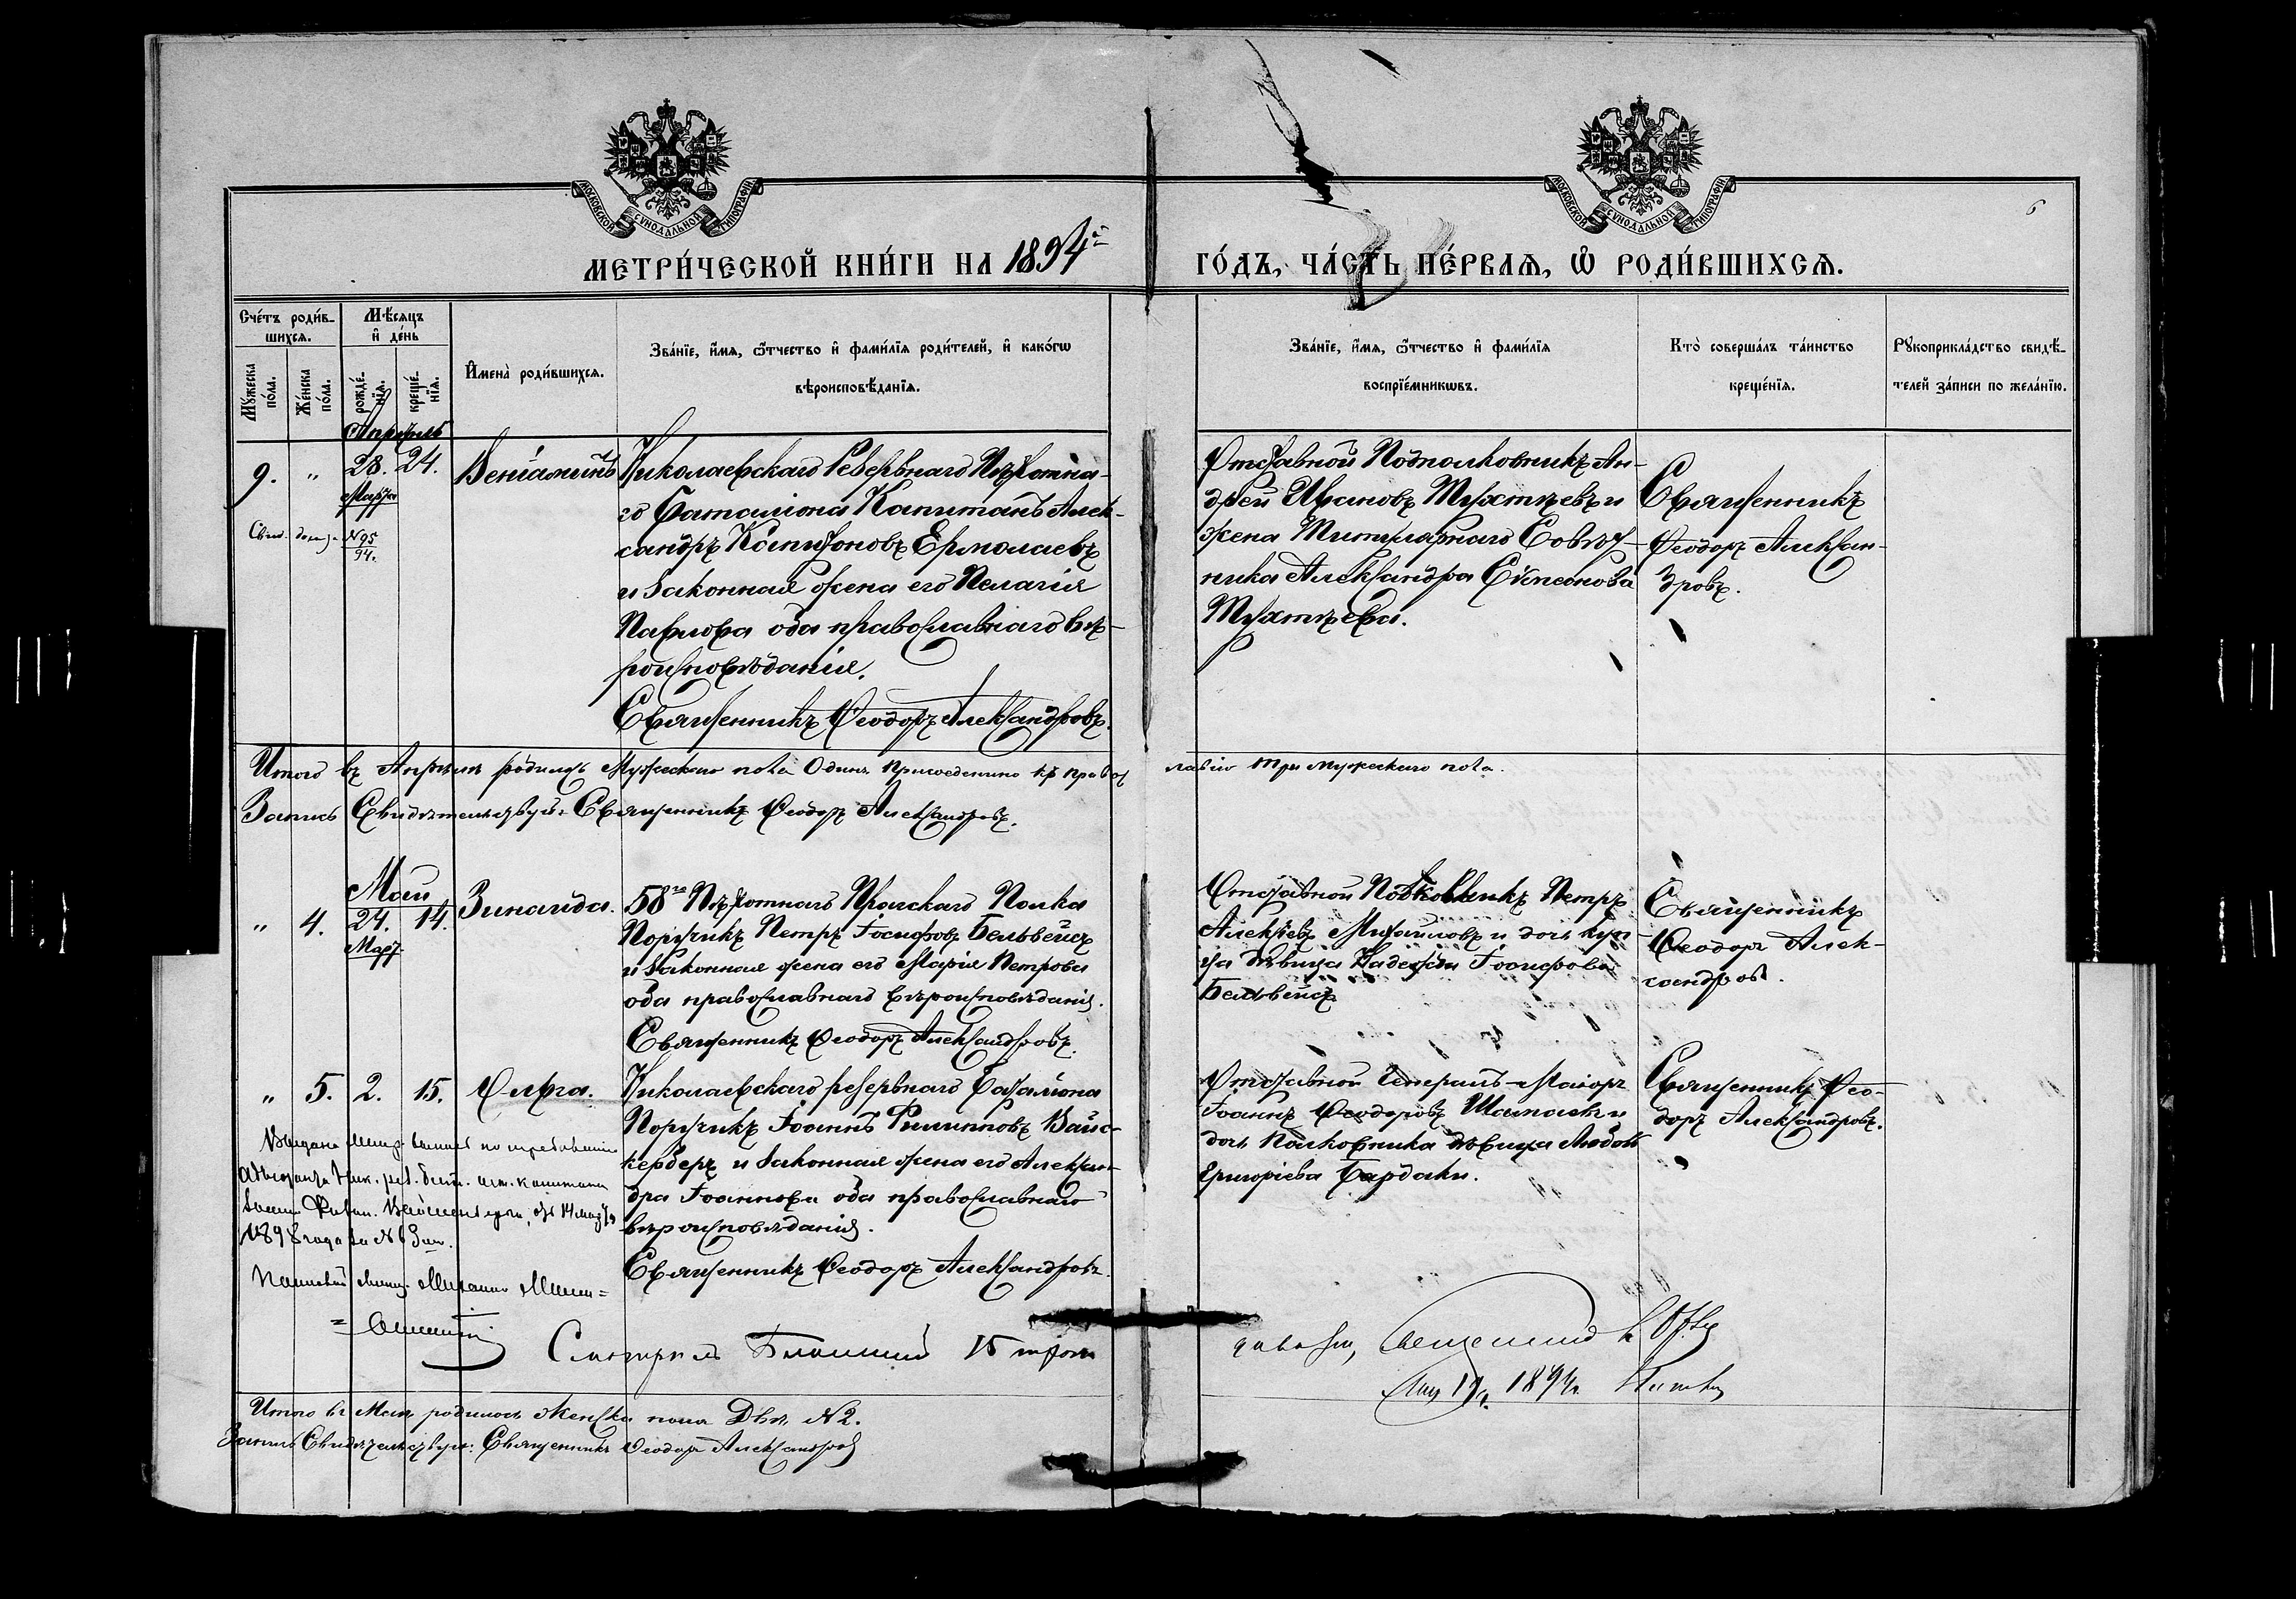 МОСКОВСКОЙ СУНОДАЛЬНОЙ ТИПОГРАФІИ
МОСКОВСКОЙ СУНОДАЛЬНОЙ ТИПОГРАФІИ
6
МЕТРИ́ЧЕСКОЙ КНИ́ГИ НА 1894й
ГО́ДЪ, ЧА́СТЬ ПЕ́РВАЯ, Ѡ҆ РОДИ́ВШИХСЯ.
Сче́тъ роди́в-
шихся.
Мѣ́сяцъ
и҆ де́нь
Му́жеска
по́ла.
Же́нска
по́ла.
рожде́-
нїя.
креще́-
нїя.
И҆мена̀ роди́вшихся.
Зва́нїе, и҆́мя, ѻ҆́тчество и҆ фами́лїя роди́телей, и҆ како́гѡ
вѣроисповѣ́данїя.
Зва́нїе, и҆́мя, ѻ҆́тчество и҆ фами́лїя
воспрїе́мникѡвъ.
Кто̀ соверша́лъ та́инство
креще́нїя.
Рꙋкоприкла́дство свидѣ́-
телей за́писи по жела́нїю.
Апрѣль
9. " 28. 24. Веніаминъ
Марта
№ 95
94.
Николаевскаго Резервнаго Пѣхотна-
го Баталіона Капитанъ Алек-
сандръ Ксенофоновъ Ермолаевъ
и законная жена его Пелагія
Павлова оба православнаго вѣ-
роисповѣданія.
Священникъ Ѳеодоръ Александровъ.
Отставной Подполковникъ Ан-
дрей Ивановъ и
жена Титулярнаго Совѣт-
ника Александра Симеонова
Священникъ
Ѳеодоръ Алексан-
дровъ.
Итого въ Апрѣлѣ родилось Мужескаго пола Одинъ Присоединено къ правос
лавію три мужескаго пола.
Запись Свидѣтельствую: Священникъ Ѳеодоръ Александровъ.
Май
" 4. 24. 14. Зинаида.
Март
58го Пѣхотнаго Прагскаго Полка
Поручикъ Петръ Іосифовъ Бельвейсъ
и законная жена его Марія Петрова
оба православнаго вѣроисповѣданія.
Священникъ Ѳеодоръ Александровъ.
Отставной Полковникъ Петръ
Алексѣевъ Михайловъ и дочь куп-
ца дѣвица Надежда Іосифова
Бельвейсъ
Священникъ
Ѳеодоръ Алек-
сандров.
" 5. 2. 15. Ольга.
Николаевскаго резервнаго Баталіона
Поручикъ Іоаннъ Филипповъ Вайс-
герберъ и законная жена его Алексан-
дра Іоаннова оба православнаго
вѣроисповѣданія.
Священникъ Ѳеодоръ Александровъ.
Отставной Генералъ-Маіоръ
Іоаннъ Ѳеодоровъ и
дочь Полковника дѣвица Любовь
Григоріева Бардаки.
Священникъ Ѳео-
доръ Александровъ.
Выдана по требованію
1898 года за №
15
1894
Итого въ Маѣ родилось Женска пола Двѣ № 2.
Запись Свидѣтельствую: Священникъ Ѳеодоръ Александров